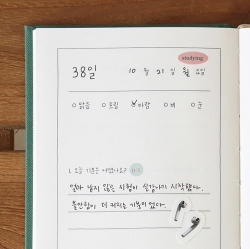 studying
38일
10 월 21 일 월 요일
맑음 흐림 바람 비 눈
1. 오늘 기분은 어땠나요?
얼마 남지 않은 시험이 실감나기 시작했다.
불안함이 더 커지는 기분이 었다.